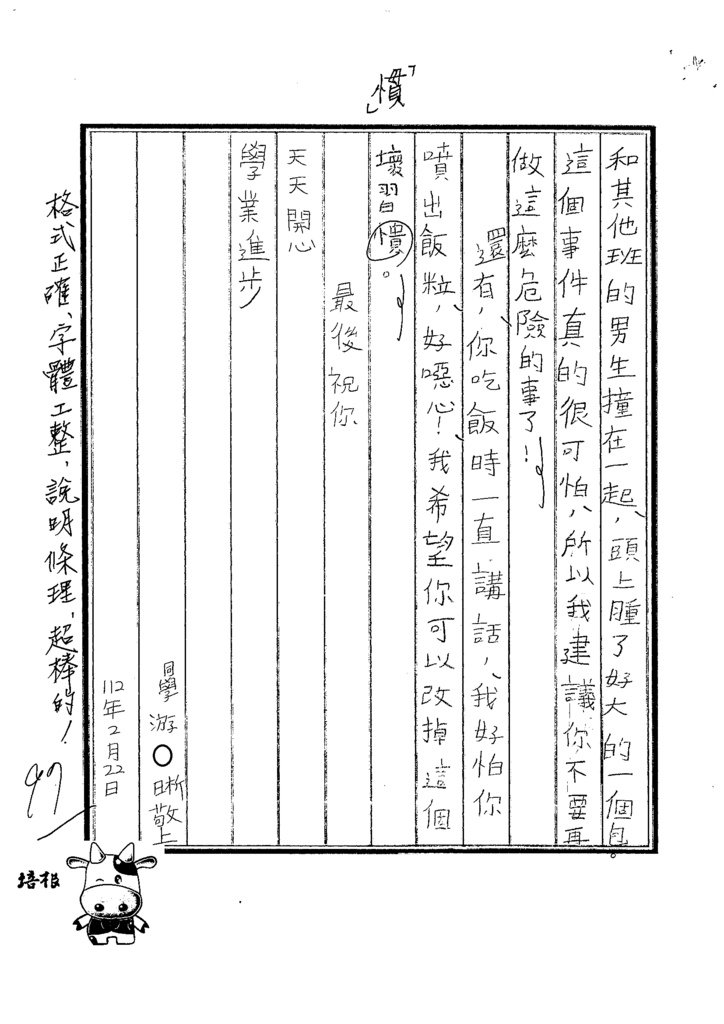 慣
和其他班的男生撞在一起，頭上腫了好大的一個包。
這個事件真的很可怕，所以我建議你不要再
做這麼危險的事了！
還有，你吃飯時一直講話，我好怕你
噴出飯粒，好噁心！我希望你可以改掉這個
壞習憒。
最後祝你
天天開心
學業進步
同學 游○晰敬上
112年2月22日
格式正確、字體工整，說明條理，超棒的！
培根